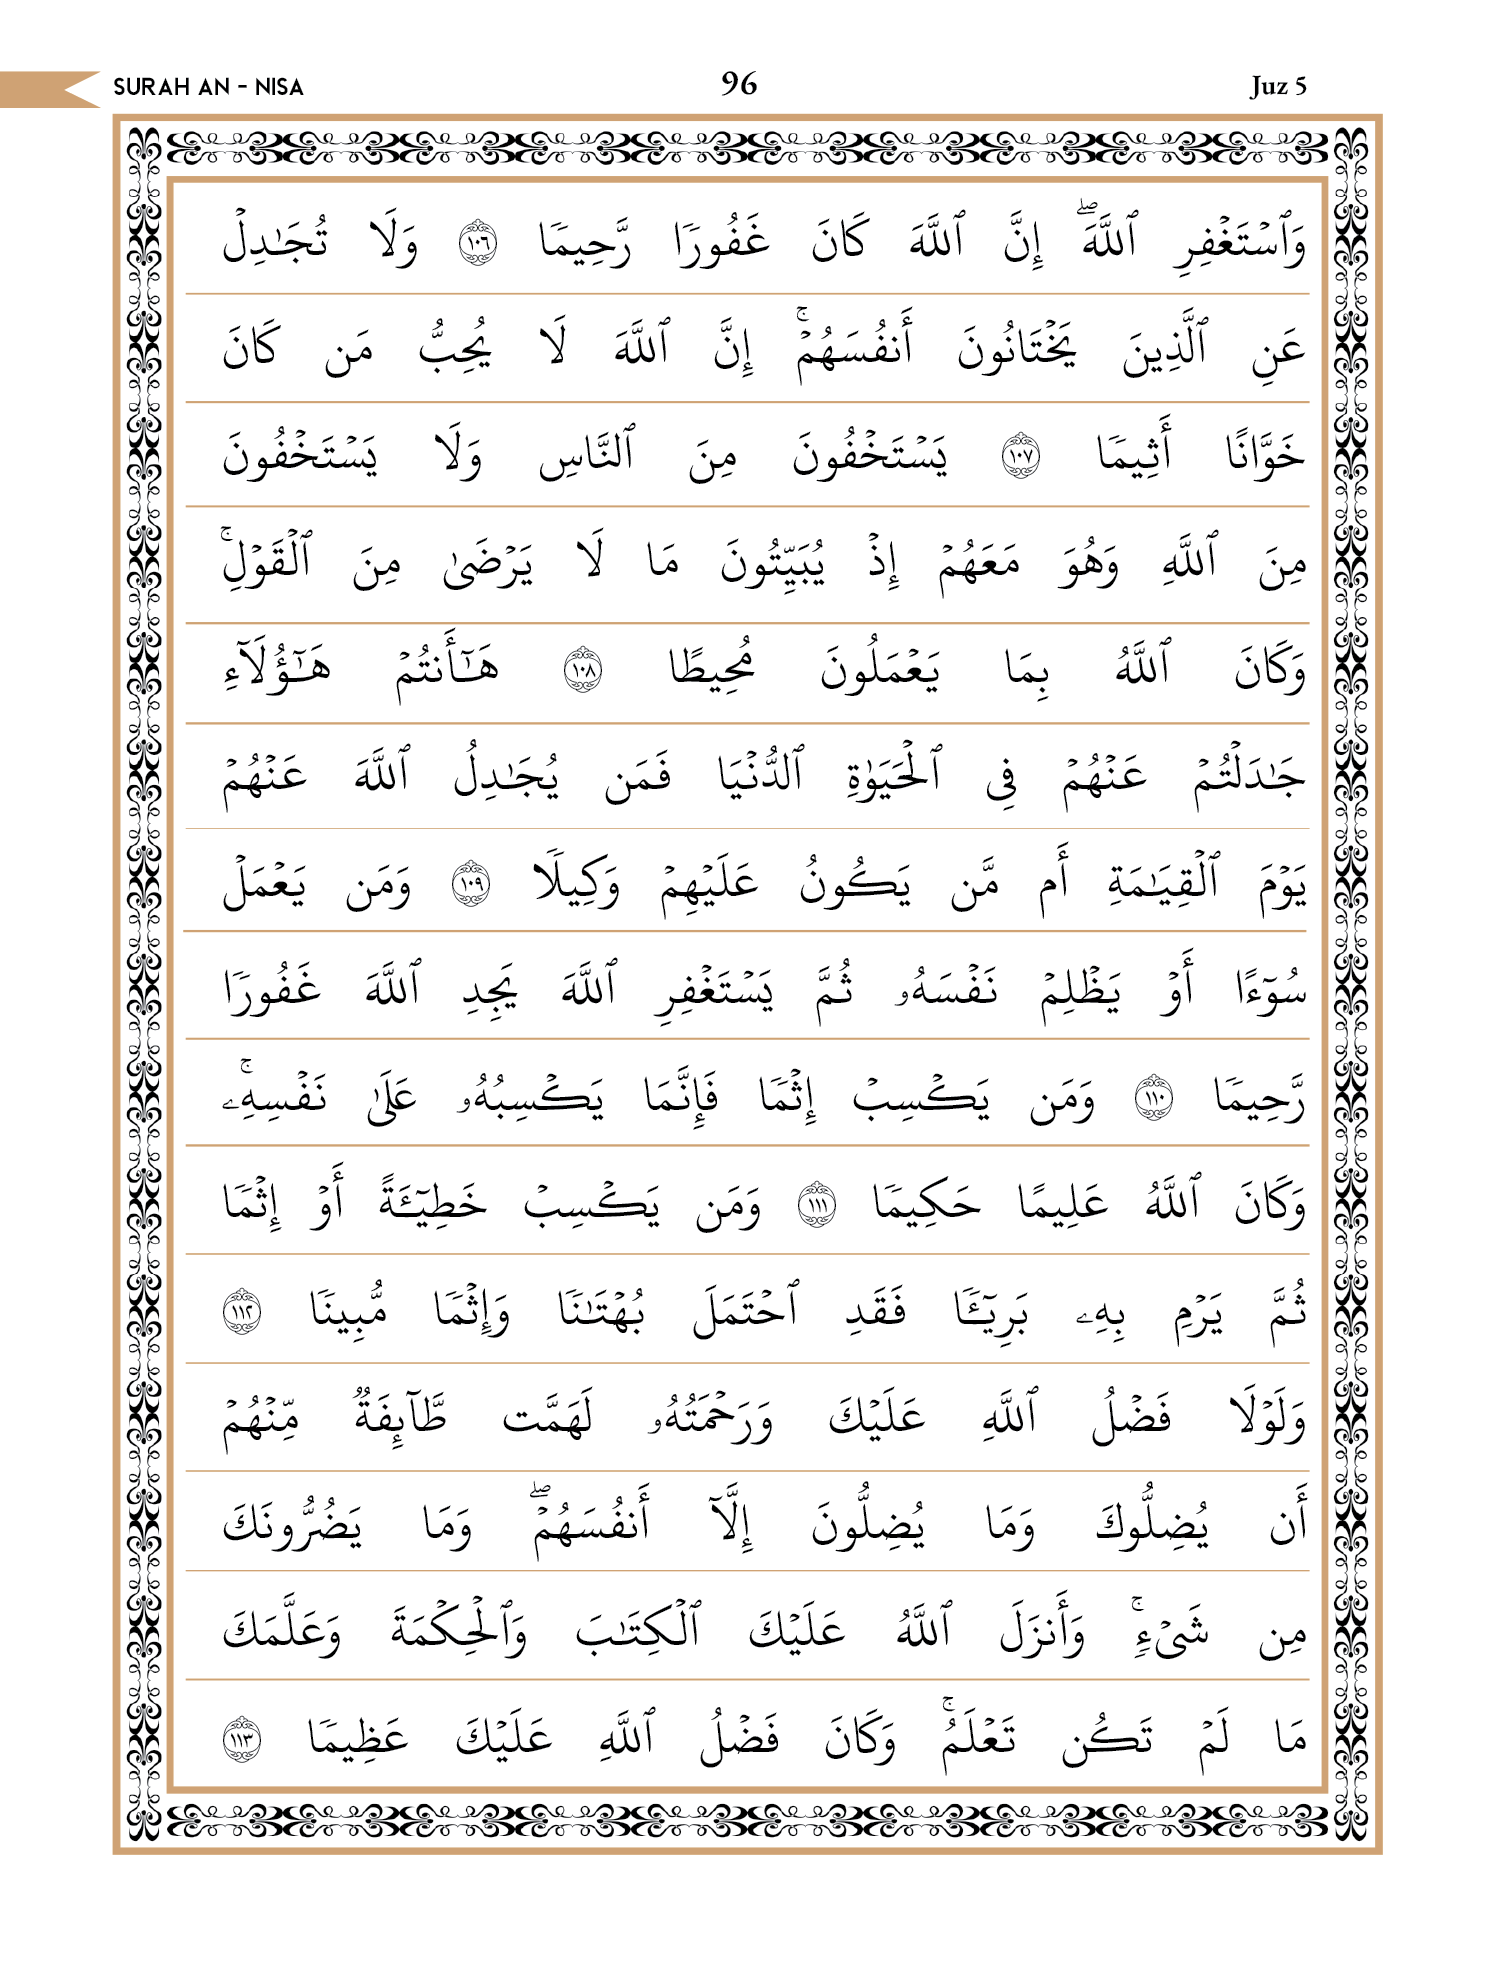 SURAH AN - NISA 96 Juz 5
وَٱسۡتَغۡفِرِ ٱللَّهَۖ إِنَّ ٱللَّهَ كَانَ غَفُورٗا رَّحِيمٗا ١٠٦ وَلَا تُجَٰدِلۡ
عَنِ ٱلَّذِينَ يَخۡتَانُونَ أَنفُسَهُمۡۚ إِنَّ ٱللَّهَ لَا يُحِبُّ مَن كَانَ
خَوَّانًا أَثِيمٗا ١٠٧ يَسۡتَخۡفُونَ مِنَ ٱلنَّاسِ وَلَا يَسۡتَخۡفُونَ
مِنَ ٱللَّهِ وَهُوَ مَعَهُمۡ إِذۡ يُبَيِّتُونَ مَا لَا يَرۡضَىٰ مِنَ ٱلۡقَوۡلِۚ
وَكَانَ ٱللَّهُ بِمَا يَعۡمَلُونَ مُحِيطًا ١٠٨ هَٰٓأَنتُمۡ هَٰٓؤُلَآءِ
جَٰدَلۡتُمۡ عَنۡهُمۡ فِي ٱلۡحَيَوٰةِ ٱلدُّنۡيَا فَمَن يُجَٰدِلُ ٱللَّهَ عَنۡهُمۡ
يَوۡمَ ٱلۡقِيَٰمَةِ أَم مَّن يَكُونُ عَلَيۡهِمۡ وَكِيلٗا ١٠٩ وَمَن يَعۡمَلۡ
سُوٓءًا أَوۡ يَظۡلِمۡ نَفۡسَهُۥ ثُمَّ يَسۡتَغۡفِرِ ٱللَّهَ يَجِدِ ٱللَّهَ غَفُورٗا
رَّحِيمٗا ١١٠ وَمَن يَكۡسِبۡ إِثۡمٗا فَإِنَّمَا يَكۡسِبُهُۥ عَلَىٰ نَفۡسِهِۦۚ
وَكَانَ ٱللَّهُ عَلِيمًا حَكِيمٗا ١١١ وَمَن يَكۡسِبۡ خَطِيٓـَٔةً أَوۡ إِثۡمٗا
ثُمَّ يَرۡمِ بِهِۦ بَرِيٓـٔٗا فَقَدِ ٱحۡتَمَلَ بُهۡتَٰنٗا وَإِثۡمٗا مُّبِينٗا ١١٢
وَلَوۡلَا فَضۡلُ ٱللَّهِ عَلَيۡكَ وَرَحۡمَتُهُۥ لَهَمَّت طَّآئِفَةٞ مِّنۡهُمۡ
أَن يُضِلُّوكَ وَمَا يُضِلُّونَ إِلَّآ أَنفُسَهُمۡۖ وَمَا يَضُرُّونَكَ
مِن شَيۡءٖۚ وَأَنزَلَ ٱللَّهُ عَلَيۡكَ ٱلۡكِتَٰبَ وَٱلۡحِكۡمَةَ وَعَلَّمَكَ
مَا لَمۡ تَكُن تَعۡلَمُۚ وَكَانَ فَضۡلُ ٱللَّهِ عَلَيۡكَ عَظِيمٗا ١١٣